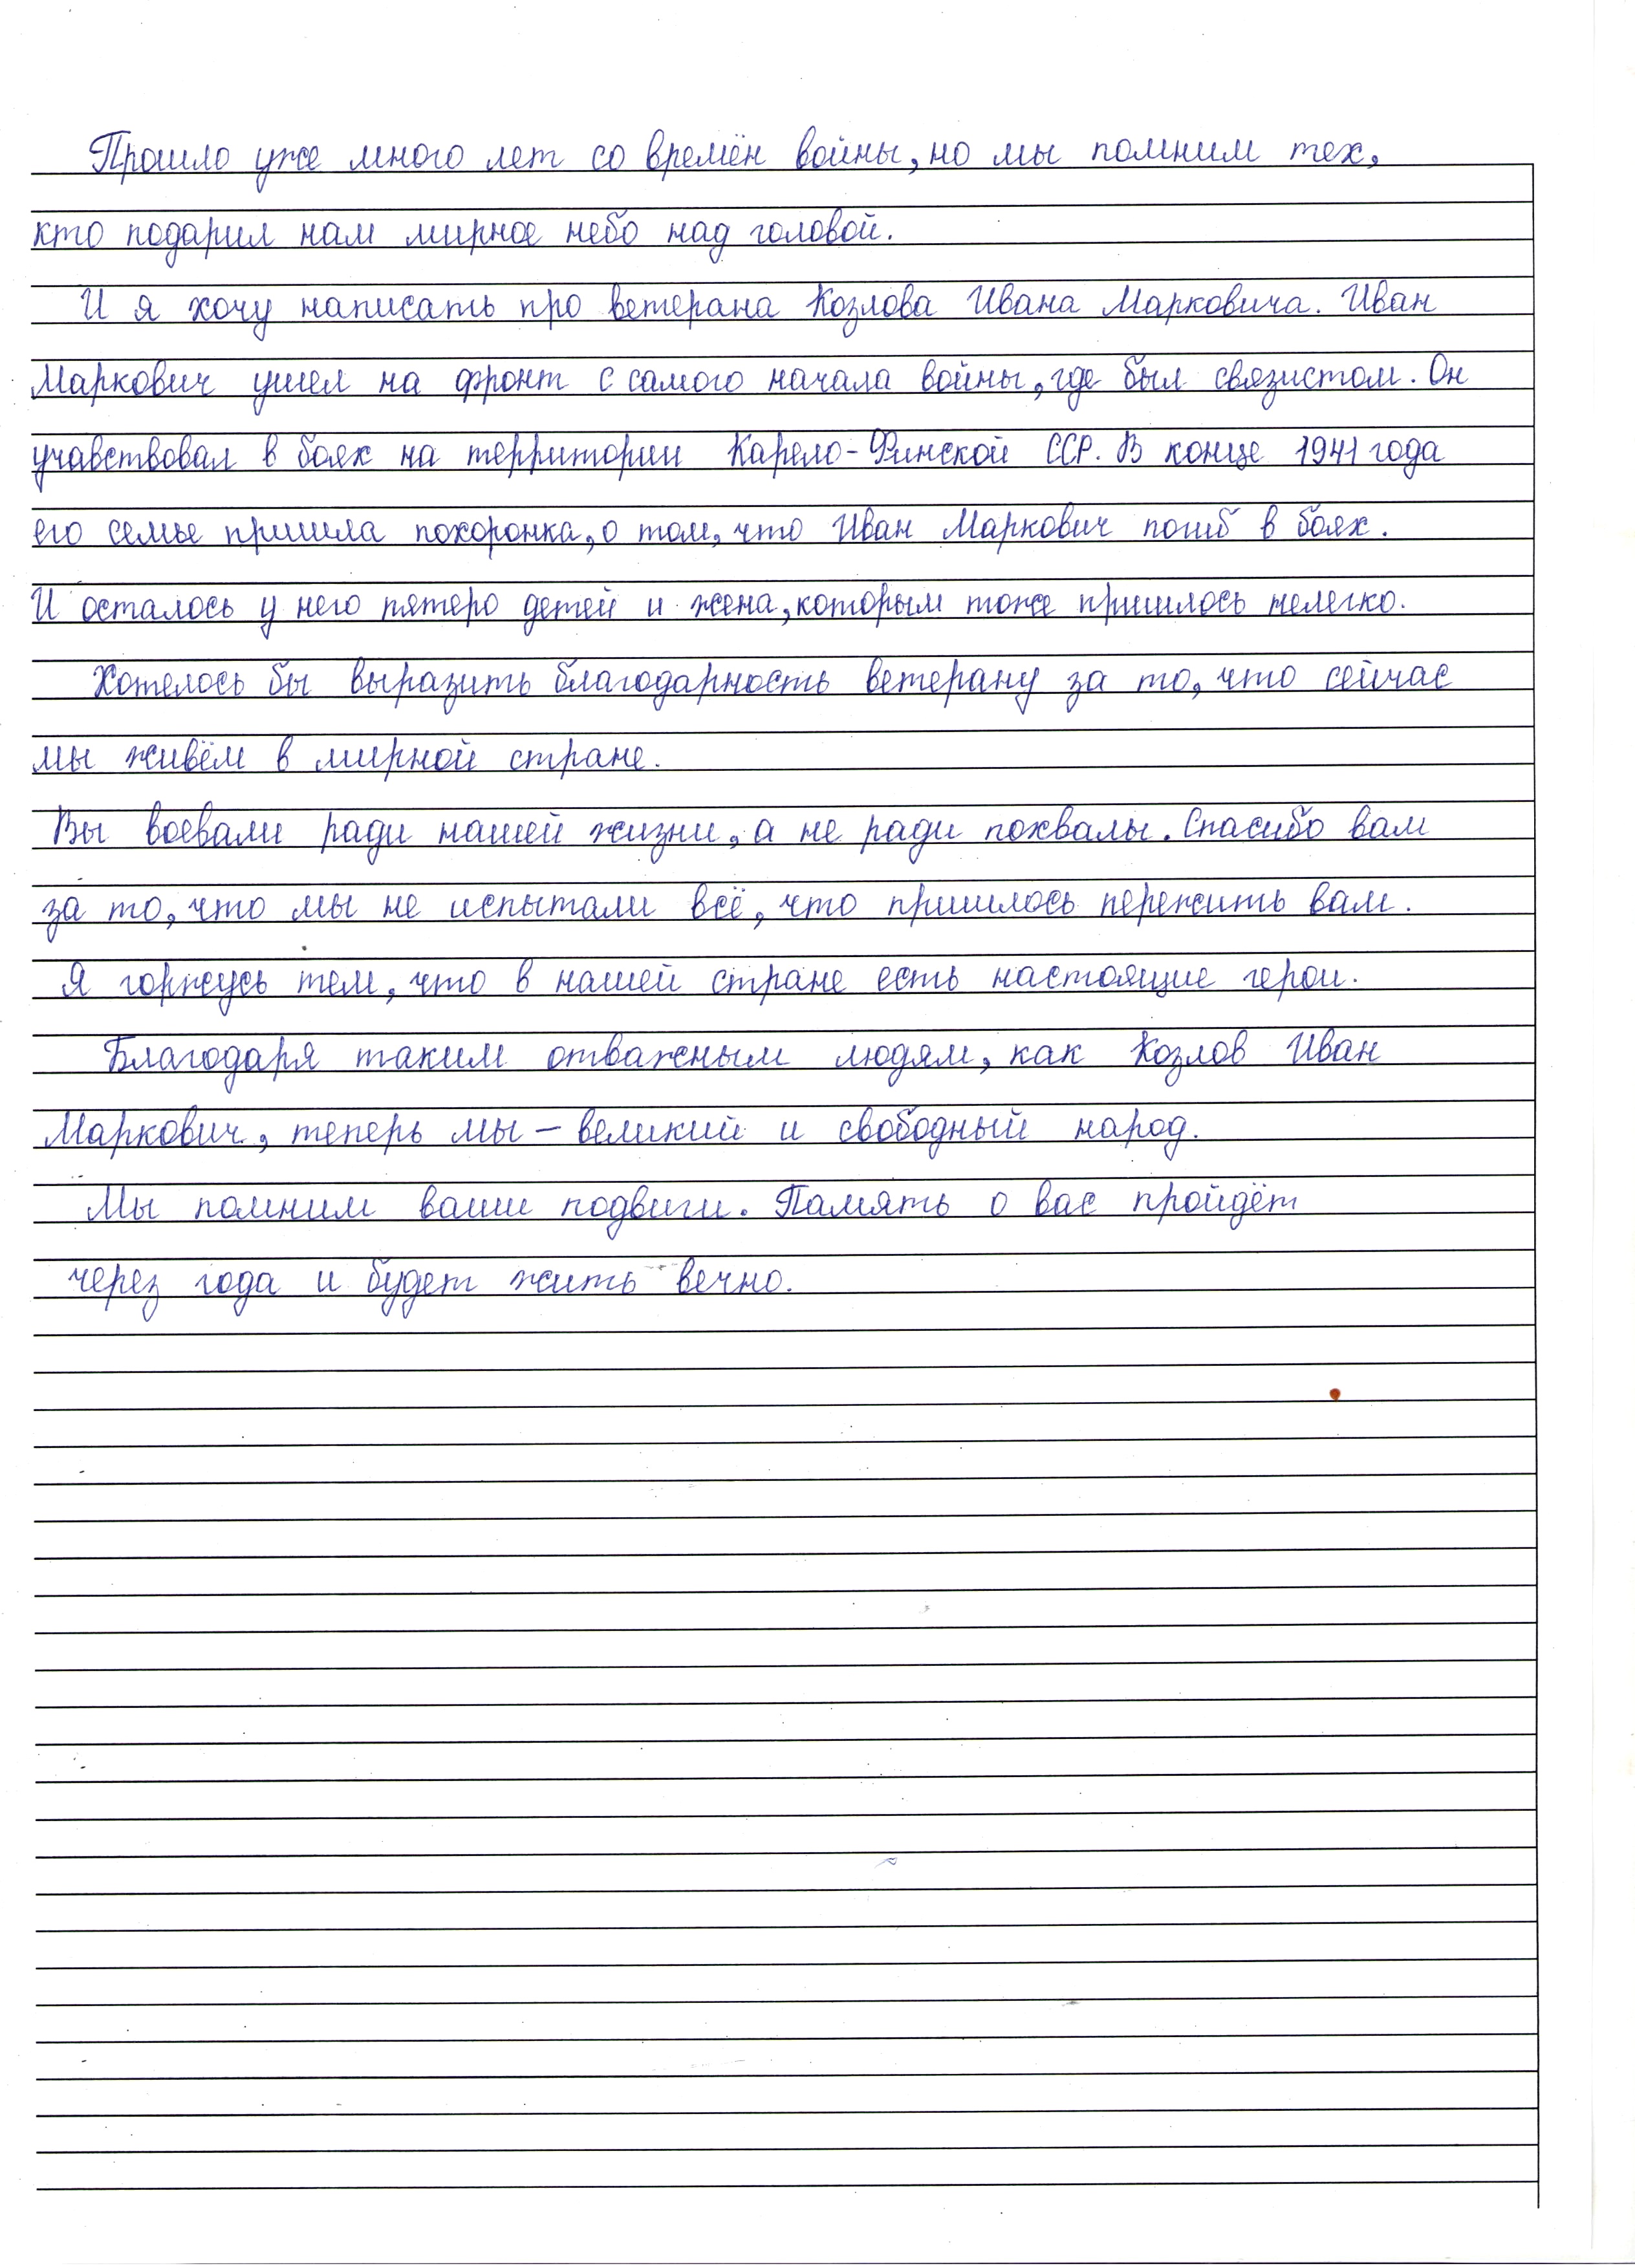 Прошло уже много лет со времён войны, но мы помним тех,
кто подарил нам мирное небо над головой.
И я хочу написать про ветерана Козлова Ивана Марковича. Иван
Маркович ушел на фронт с самого начала войны, где был связистом. Он
учавствовал в боях на территории Карело-Финской ССР. В конце 1941 года
его семье пришла похоронка, о том, что Иван Маркович погиб в боях.
И осталось у него пятеро детей и жена, которым тоже пришлось нелегко.
Хотелось бы выразить благодарность ветерану за то, что сейчас
мы живём в мирной стране.
Вы воевали ради нашей жизни, а не ради похвалы. Спасибо вам
за то, что мы не испытали всё, что пришлось пережить вам.
Я горжусь тем, что в нашей стране есть настоящие герои.
Благодаря таким отважным людям, как Козлов Иван
Маркович, теперь мы – великий и свободный народ.
Мы помним ваши подвиги. Память о вас пройдёт
через года и будет жить вечно.